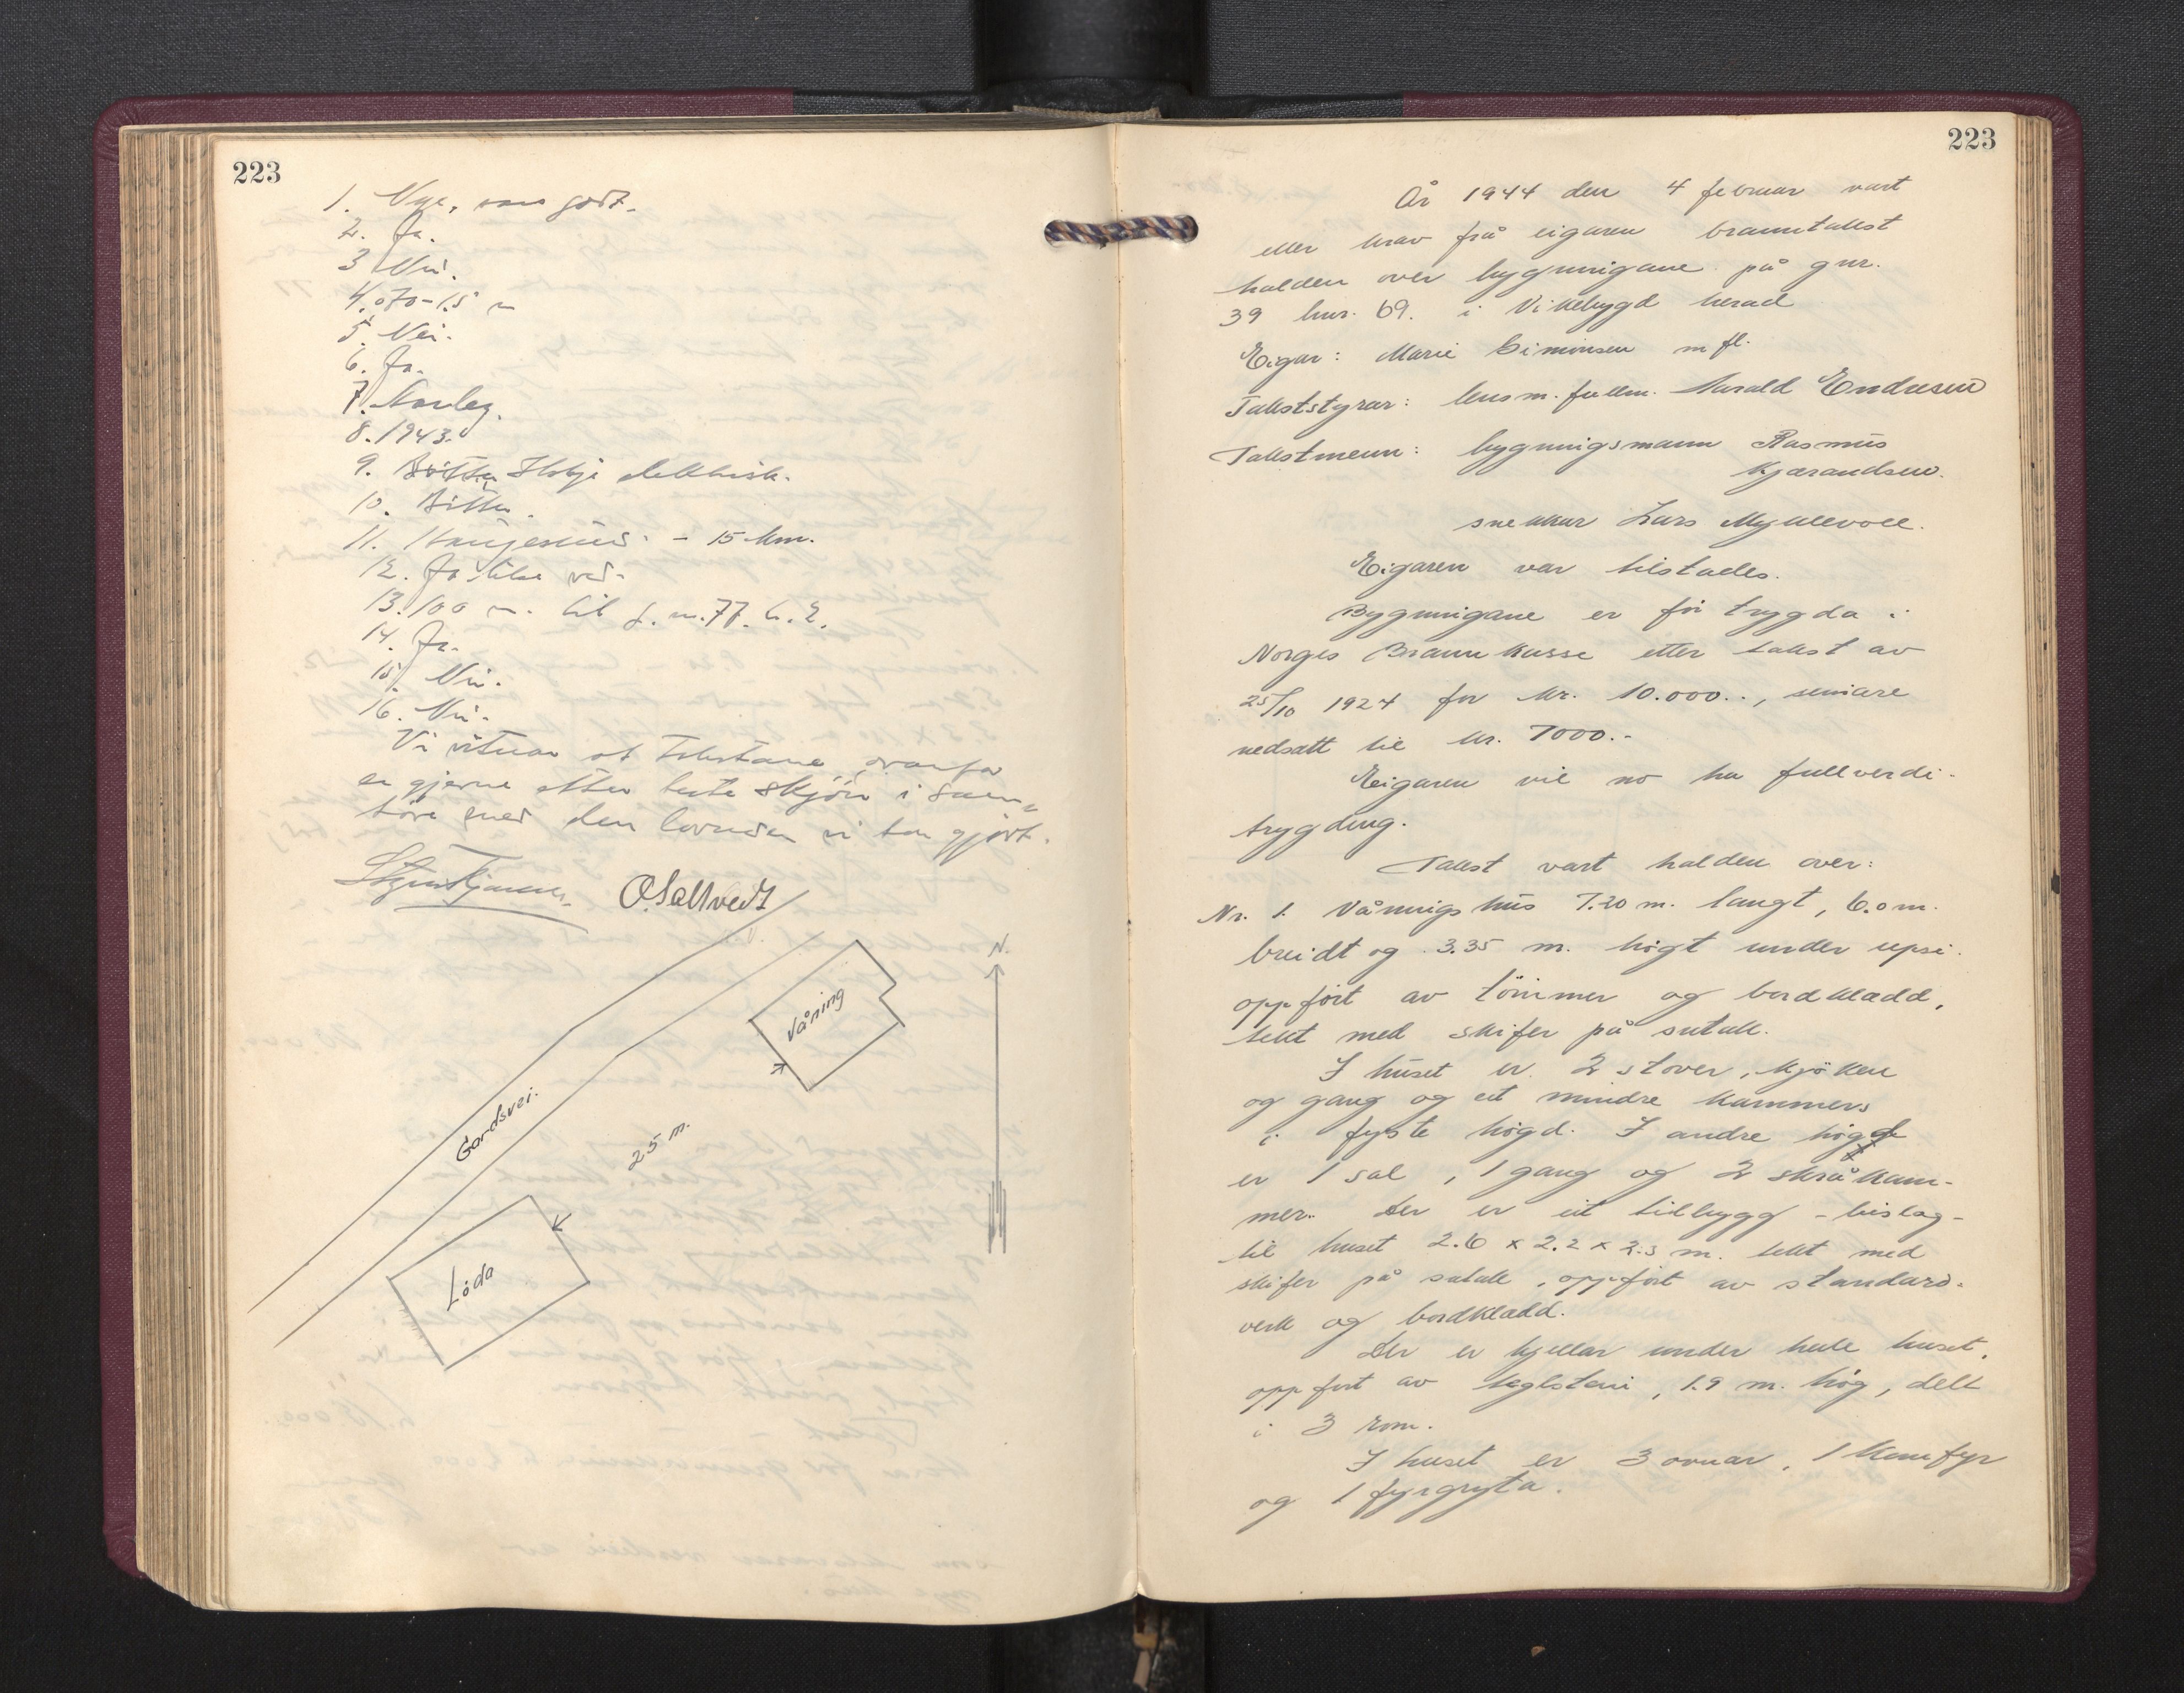 223
1. Nye, vare godt.
2. Ja.
3 Nei.
4. 070-1.5 m
5. Nei.
6. Ja.
7. Norleg.
8. 1943.
9. Bøtter elektrisk.
10. Bøtter.
11. Haugesund. - 15 km.
12. Ja ved.
13. 100 m. til g. n. 77. b. 2.
14. Ja.
15. Nei.
16. Nei.
Vi vitnar at Takstane ovanfor
er gjerne etter beste skjøn i sam-
høve med den lovnaden vi har gjort.
O. Saltvedt
Gardsvei.
Våning
N.
25 m.
Löda
223
År 1944 den 4 februar vart
etter krav frå eigaren branntakst
halden over bygningane på gnr.
39 bnr. 69. i Vikebygd herad
Eigar: Marie Simonsen m fl.
Takststyrar: lensm. fullm. Harald Endresen
Takstmenn: bygningsmann Rasmus
Kjærandsen.
snekkar Lars Myklevoll.
Eigaren var tilstades.
Bygningane er før trygda i
Norges Brannkasse etter takst av
25/10 1924 for kr. 10.000.., seinare
nedsatt til kr. 7000.-
Eigaren vil no ha fullverdi-
trygding.
Takst vart halden over:
Nr. 1. Våningshus 7.20 m. langt, 6.0 m.
breidt og 3.35 m. högt under upsi.
oppfört av tömmer og bordkledd,
tekt med skifer på sutak.
I huset er 2 stover, kjöken
og gang og eit mindre kammers
i fyste högd. I andre högd
er 1 sal, 1 gang og 2 skråkam-
mer. Der er eit tilbygg - bislag -
til huset 2.6 x 2.2 x 2.3 m. tekt med
skifer på sutak, oppfört av standard-
verk og bordkledd.
Der er kjellar under heile huset,
oppfört av teglstein, 1.9 m. hög, delt
i 3 rom.
I huset er 3 ovnar, 1 komfyr
og 1 fyrgryta.